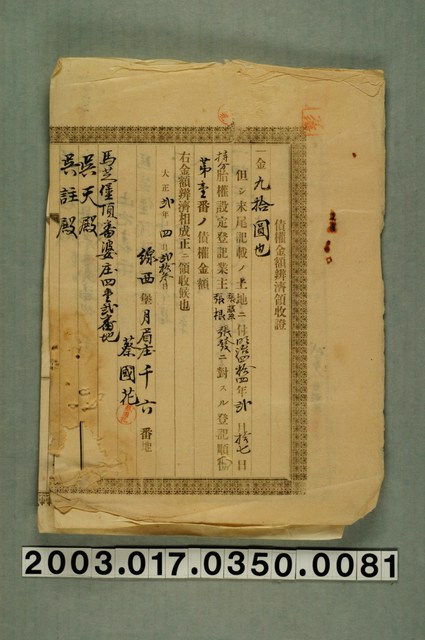 債權金額辨濟領收證
一金九拾圓也
但シ末尾記載ノ土地ニ付明治四拾四年弐月拾七日
持分胎權設定登記業主張根張發ニ對スル登記順位
第壹番ノ債權金額
右金額辨濟相成正ニ領收候也
大正弐年四月弐拾
線西堡月眉庄千六番地
蔡國花
馬芝堡頂番婆庄四弐番地
吳天殿
吳註殿
2003.017.0350.0081